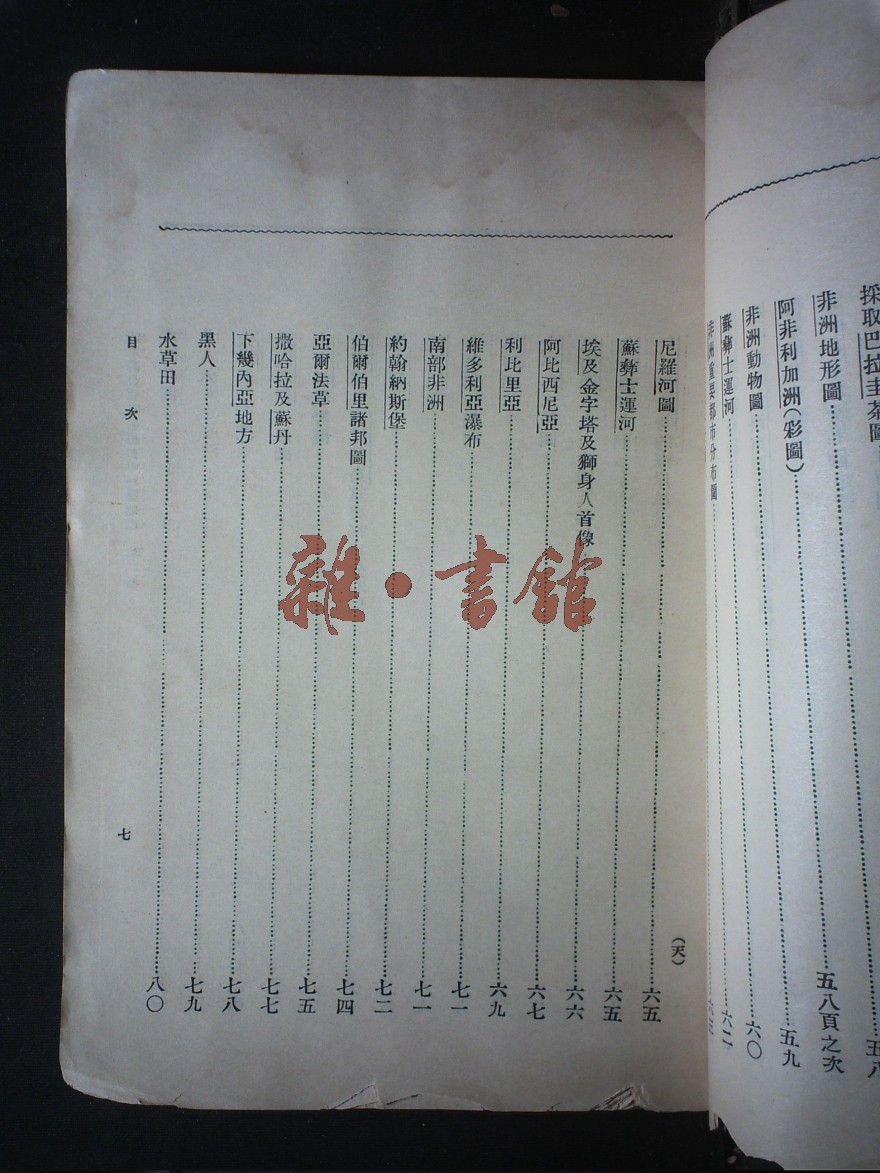 採取巴拉圭茶圖
非洲地形圖⋯⋯五八頁之次
阿非利加洲(彩圖)⋯⋯五九
非洲動物圖⋯⋯六〇
蘇彝士運河⋯⋯六二
非洲重要都市分布圖⋯⋯
(天)
尼羅河圖⋯⋯六五
蘇彝士運河⋯⋯六五
埃及金字塔及獅身人首像⋯⋯六六
阿比西尼亞⋯⋯六七
利比里亞⋯⋯六九
維多利亞瀑布⋯⋯七一
南部非洲⋯⋯七一
約翰納斯堡⋯⋯七二
伯爾伯里諸邦圖⋯⋯七四
亞爾法草⋯⋯七五
撒哈拉及蘇丹⋯⋯七七
下幾內亞地方⋯⋯七八
黑人⋯⋯七九
水草田⋯⋯八〇
目次
七
雜·書館